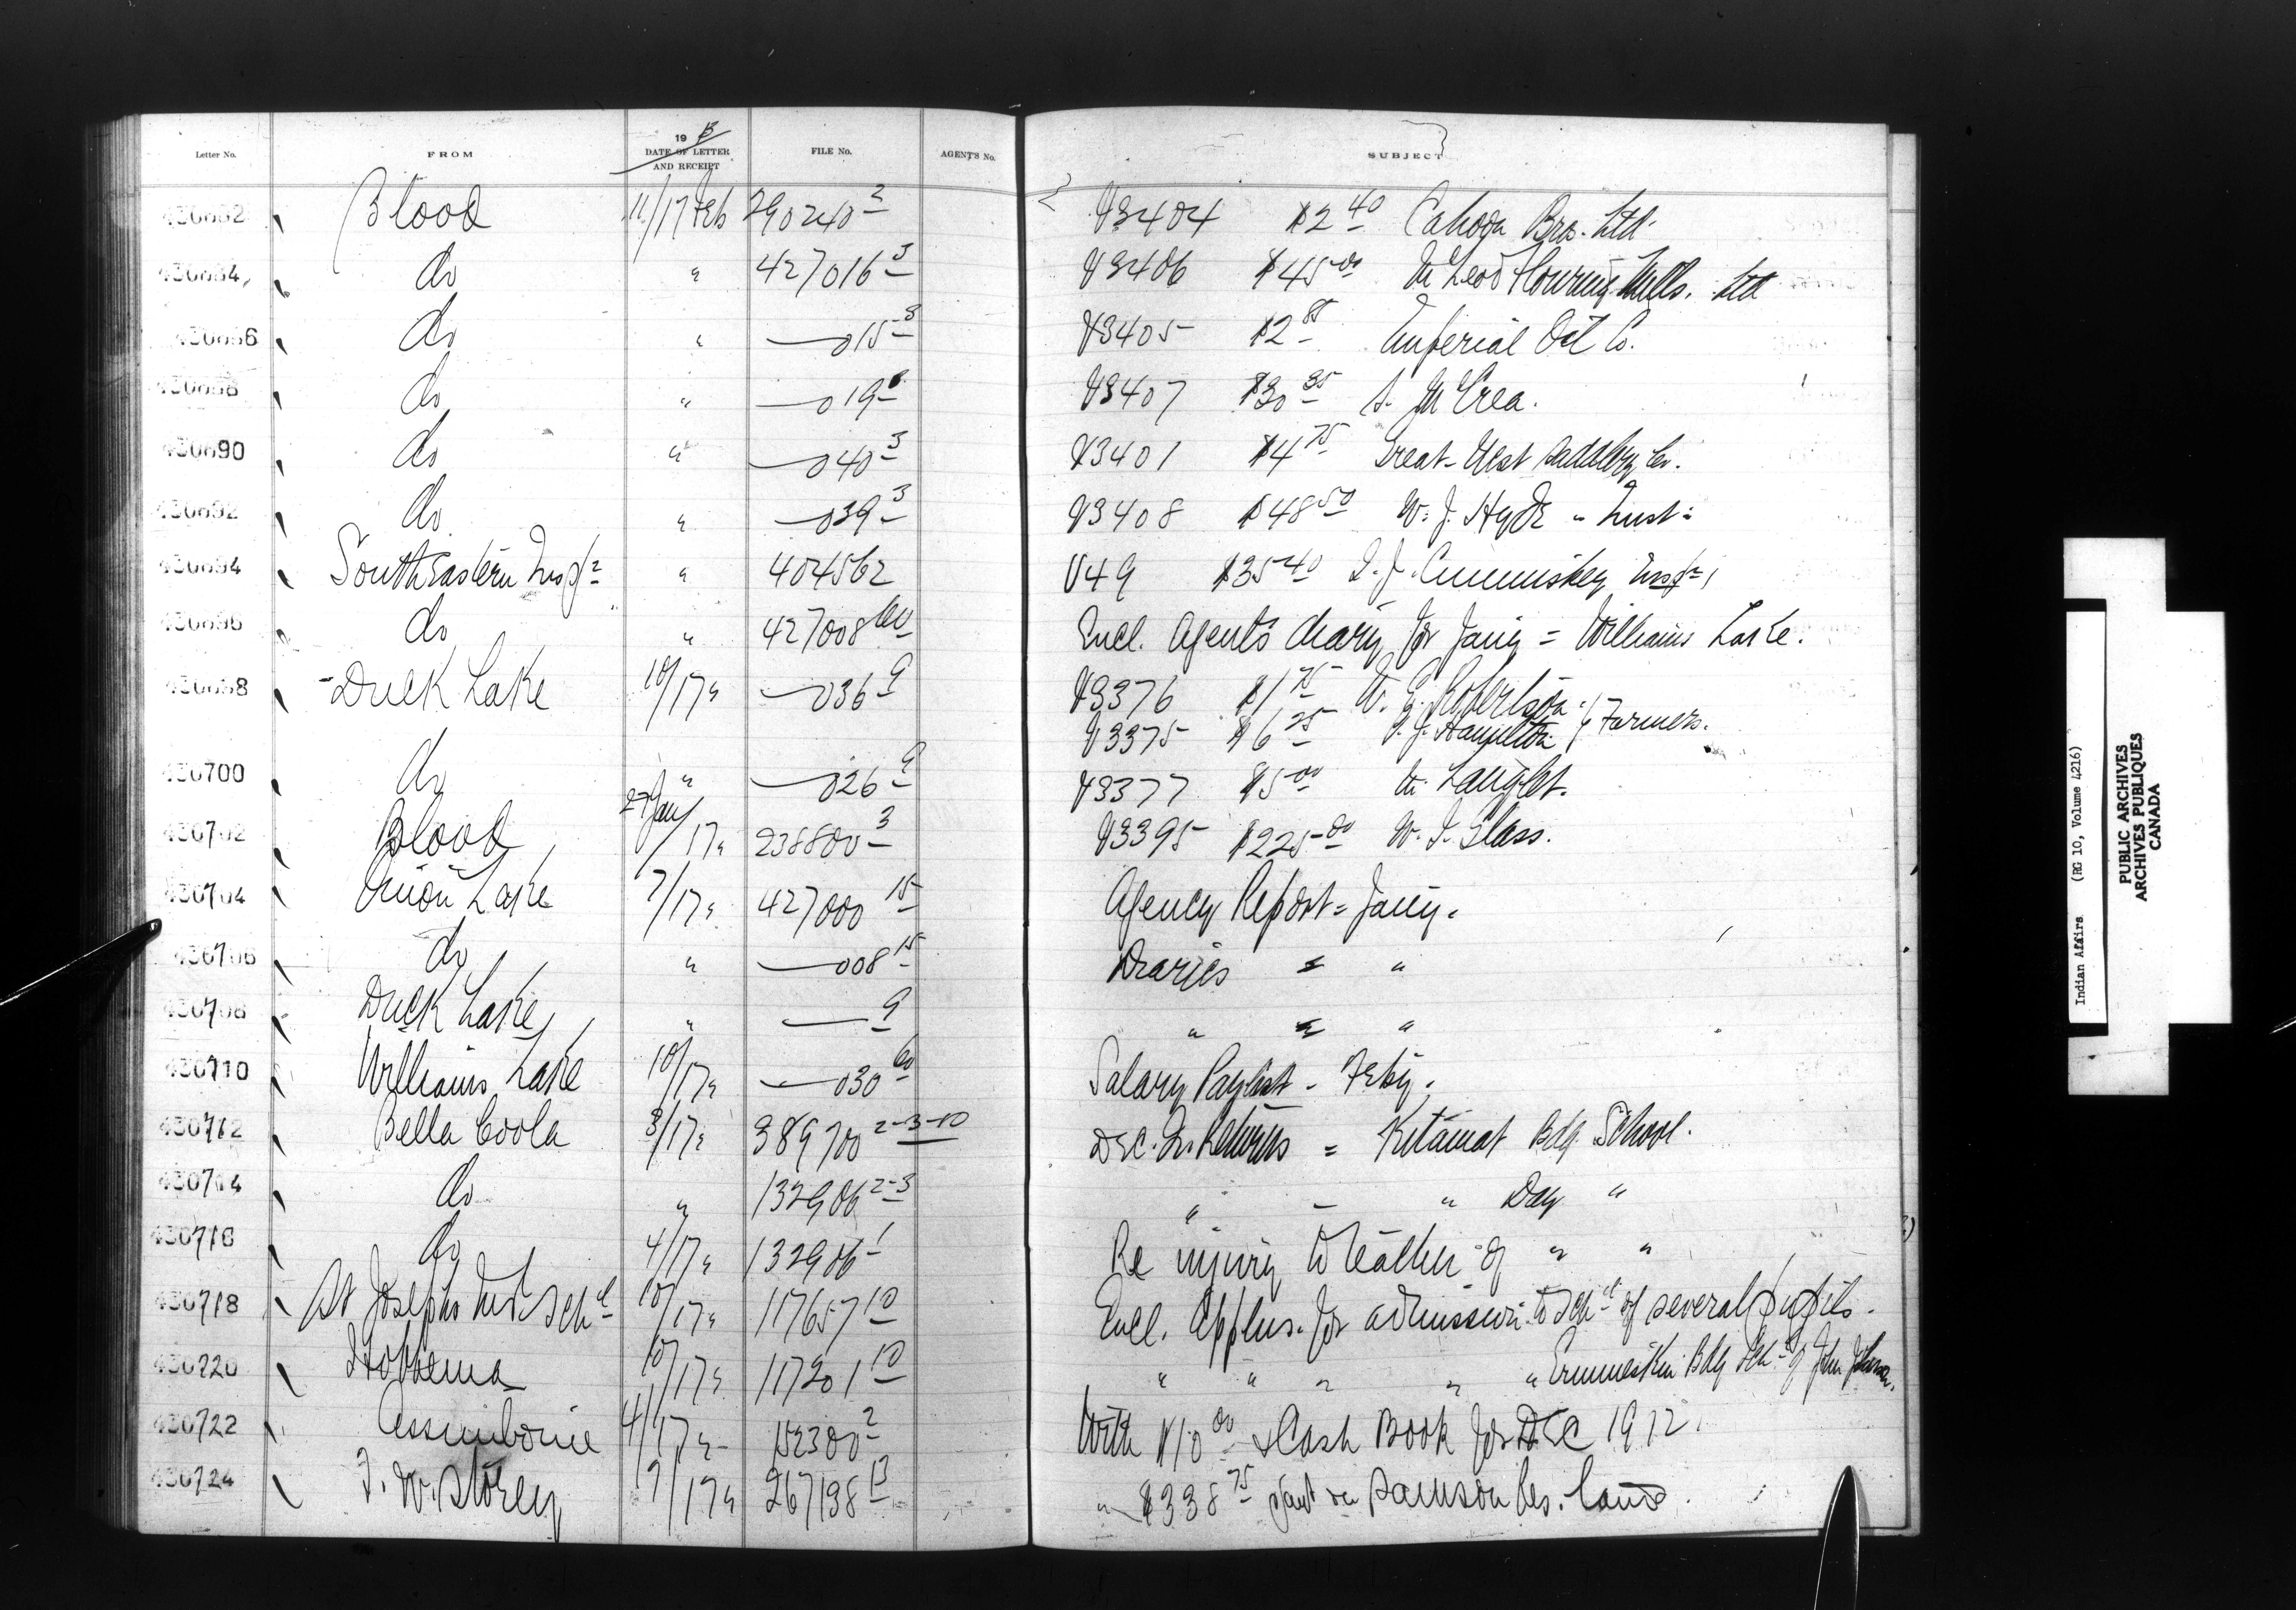 Letter No. FROM 19 13 DATE OF LETTER AND RECEIPT FILE No. AGENT'S No. SUBJECT
430682 Blood 11/17 Feb 290240 3 V3404 $2 40 Cahoon Bros. Ltd.
430684 do " 427016 3 V3406 $45 00 McLeod Flouring Mills. Ltd
430686 do " — 015 3 V3405 $2 85 Imperial Oil Co.
430688 do " — 019 3 V3407 $30 35 McCrea.
430690 do " — 040 3 V3401 $4 75 Great West Saddlery Co.
430692 do " — 039 3 V3408 $48 50 W. J. Hyde
430694 SouthEastern Insp r " 404562 V49 $35 40 Cummiskey Insp r
430696 do " 427008 60 Encl. Agents diary for Jany = Williams Lake.
430698 Duck Lake 10/17 " — 036 9 V3376 $1 75 Robertson
V3375 $6 25 Hamilton } Farmers.
430700 do " — 026 9 V3377 $5 00 Laught.
430702 Blood 27 Jan/17 " 238800 3 V3395 $225 00 W. J. Glass.
430704 Onion Lake 7/17 " 427000 15 Agency Report = Jany.
430706 do " — 008 15 Diaries = "
430708 Duck Lake " — 9 " = "
430710 Williams Lake 10/17 " — 030 60 Salary Paylist - Feby.
430712 Bella Coola 3/17 " 389700 2-3-10 Dec. Qr. Returns = Kitamat Bdg. School.
430714 do " 132906 2-3 " - " Day "
430716 do 4/17 " 132906 1 Re injury to teacher of " "
430718 St Josephs Ind. Sch l 10/17 " 117657 10 Encl. Applns. for admission to Sch l of several pupils.
430720 Hobbema 10/17 " 117201 10 " " " " " Ermineskin Bdg Sch l of John Johnson.
430722 Assiniboine 4/17 " 152300 2 With $10 00 & Cash Book for Dec 1912.
430724 F. W. Storey 9/17 " 267198 13 " $338 75 on Samson Res. land.
Indian Affairs (RG 10, Volume 4216)
PUBLIC ARCHIVES
ARCHIVES PUBLIQUES
CANADA